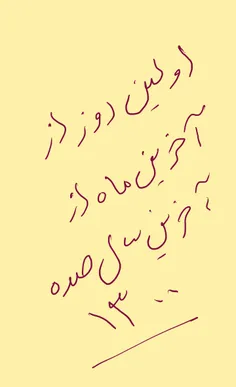 اولین روز از
آخرین ماه از
آخرین سال صده
۱۳۰۰